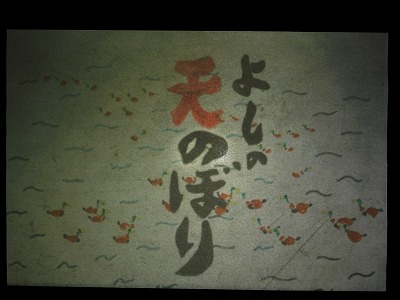 よしの
天のぼり